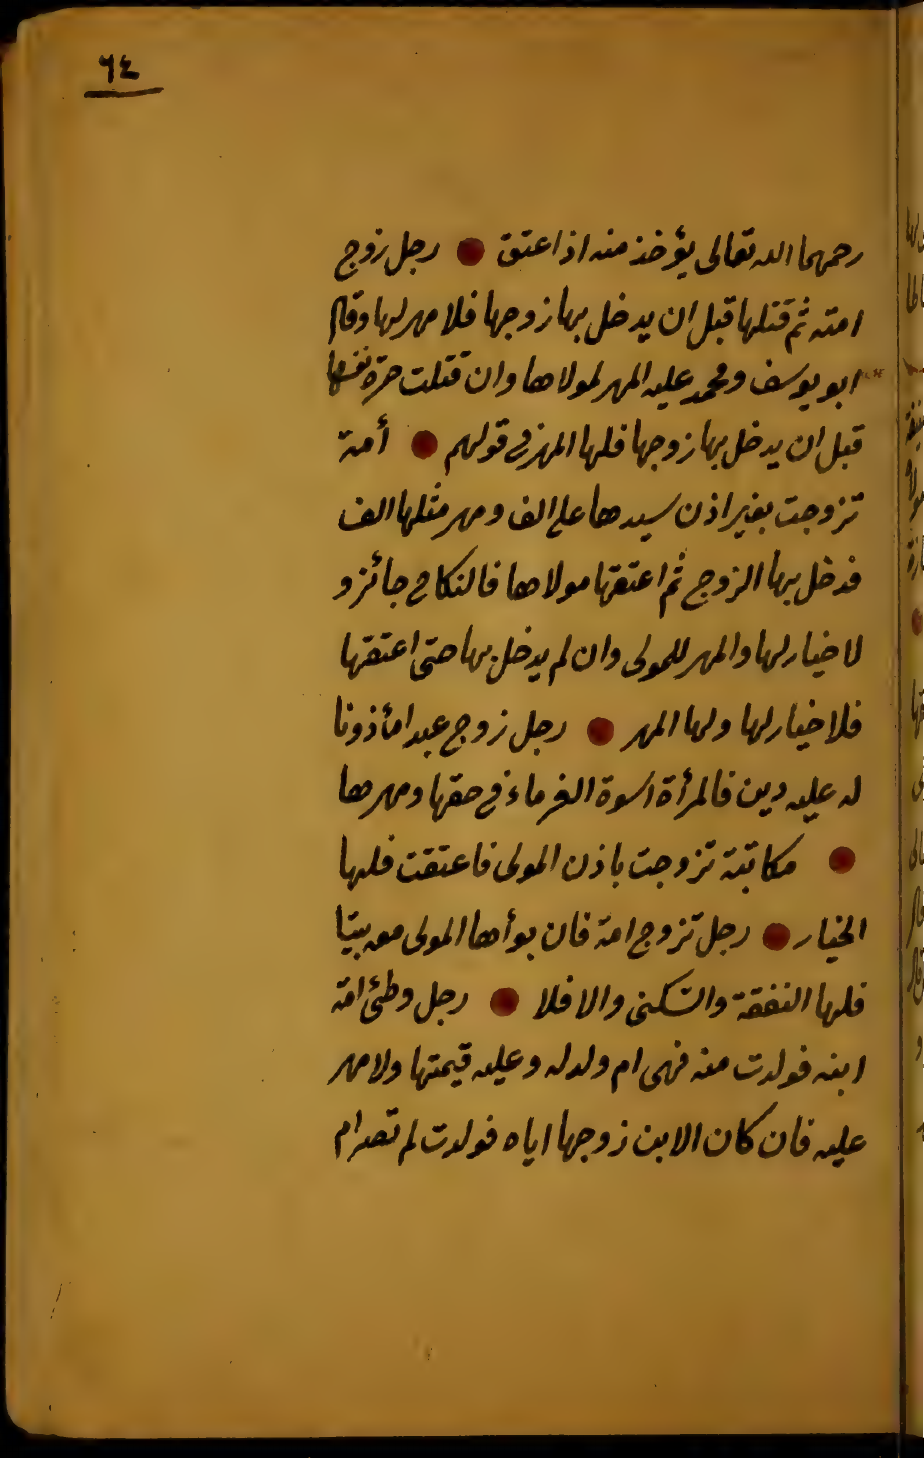 ٦٤
رحمهما الله تعالى يؤخذ منه اذا عتق ● رجل زوج
امته ثم قتلها قبل ان يدخل بها زوجها فلا مهر لها وقال
ابو يوسف ومحمد عليه المهر لمولاها وان قتلت حرة نفسها
قبل ان يدخل بها زوجها فلها المهر في قولهم ● أمة
تزوجت بغير اذن سيدها على الف ومهر مثلها الف
فدخل بها الزوج ثم اعتقها مولاها فالنكاح جائز و
لا خيار لها والمهر للمولى وان لم يدخل بها حتى اعتقها
فلا خيار لها ولها المهر ● رجل زوج عبدا مأذونا
له عليه دين فالمرأة اسوة الغرماء في حقها ومهرها
● مكاتبة تزوجت باذن المولى فاعتقت فلها
الخيار ● رجل تزوج امة فان بوأها المولى معه بيتا
فلها النفقة والسكنى والا فلا ● رجل وطئ امة
ابنه فولدت منه فهى ام ولد له وعليه قيمتها ولا مهر
عليه فان كان الابن زوجها اياه فولدت لم تصر ام